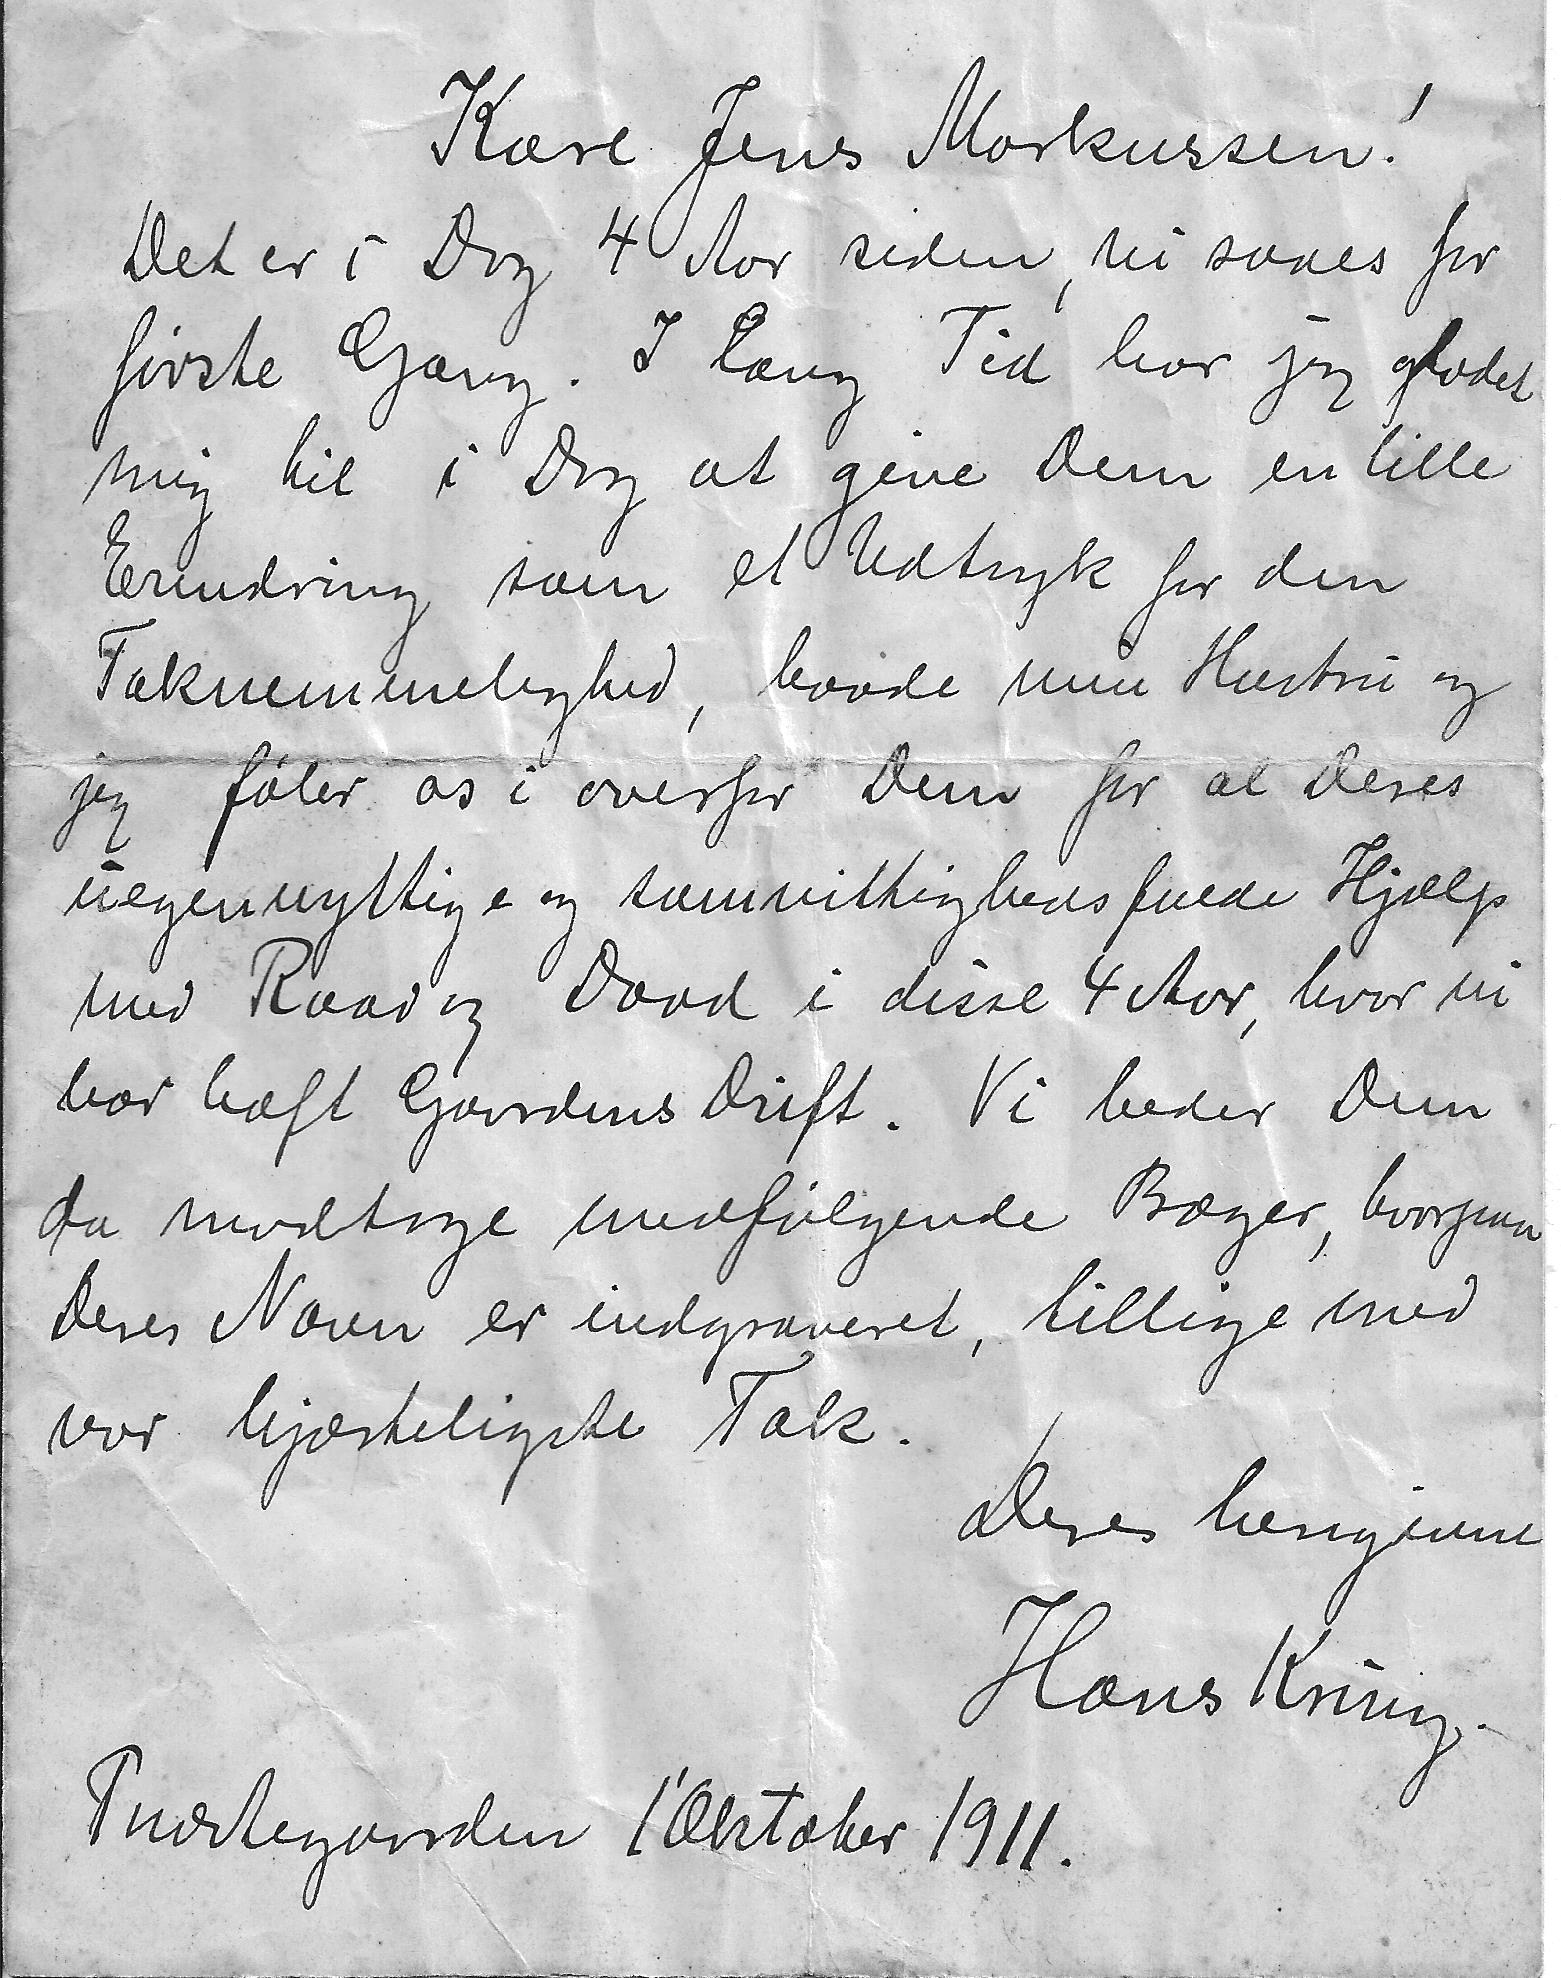 Kære Jens Markussen!
Det er i Dag 4 Aar siden, vi saaes for
første Gang. I lang Tid har jeg glædet
mig til i Dag at give Dem en lille
Erindring som et Udtryk for den
Taknemmelighed, baade min Hustru og
jeg føler os i overfor Dem for al Deres
uegennyttige og samvittighedsfulde Hjælp
med Raad og Daad i disse 4 Aar, hvor vi
har haft Gaardens Drift. Vi beder Dem
da modtage medfølgende Bæger, hvorpaa
Deres Navn er indgraveret, tillige med
vor hjærteligste Tak.
Deres hengivne
Hans Kring.
Præstegaarden 1' Oktober 1911.